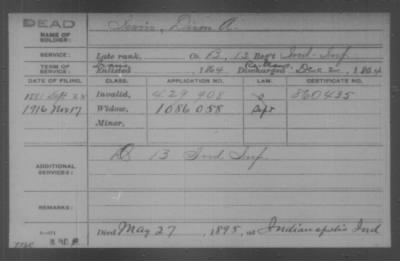 DEAD
NAME OF SOLDIER:
Dixon A.
SERVICE:
Late rank, Co. B, 13 Reg't Ind. Inf.
TERM OF SERVICE:
Enlisted , 1864 Discharged , 1864
DATE OF FILING. CLASS. APPLICATION NO. LAW. CERTIFICATE NO.
Sept Invalid, 429 408 860435
1916 Nov 17 Widow, 1086 058
Minor,
ADDITIONAL SERVICES:
13 Ind Inf.
REMARKS:
Died May 27, 1895, at Indianapolis Ind